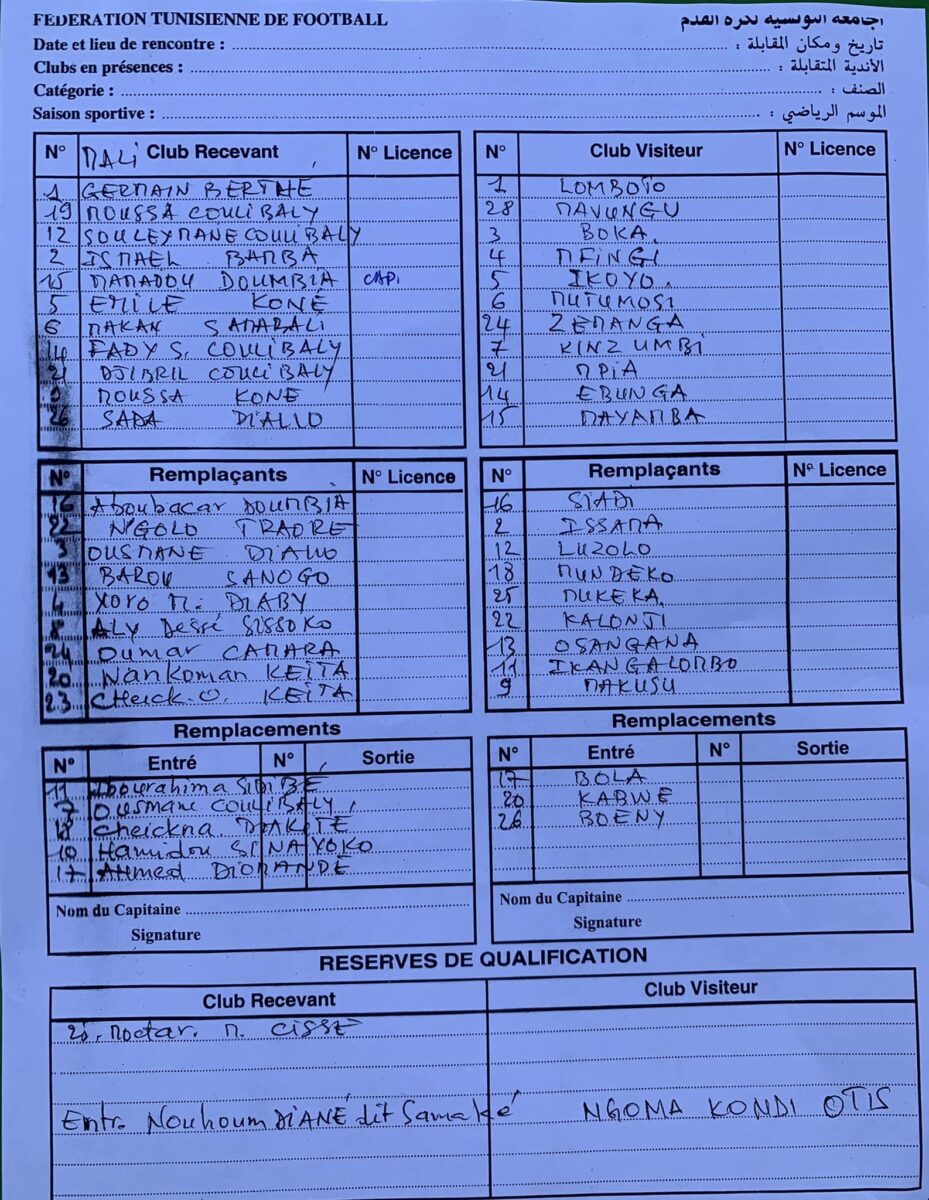 FEDERATION TUNISIENNE DE FOOTBALL
الجامعة التونسية لكرة القدم
Date et lieu de rencontre : تاريخ ومكان المقابلة :
Clubs en présences : الأندية المتقابلة :
Catégorie : الصنف :
Saison sportive : الموسم الرياضي :
N° MALI Club Recevant N° Licence
1 GERMAIN BERTHE
19 MOUSSA COULIBALY
12 SOULEYMANE COULIBALY
2 ISMAEL BAMBA
15 MAMADOU DOUMBIA CAP.
5 EMILE KONE
6 MAKAN SAMABALI
14 FADY S. COULIBALY
21 DJIBRIL COULIBALY
MOUSSA KONE
26 SADA DIALLO
N° Club Visiteur N° Licence
1 LOMBOTO
28 MAVUNGU
3 BOKA
4 MFINGI
5 IKOYO
6 MUTUMOSI
24 ZEMANGA
7 KINZUMBI
21 MPIA
14 EBUNGA
15 MAYAMBA
N° Remplaçants N° Licence
16 Aboubacar DOUMBIA
22 N'GOLO TRAORE
3 OUSMANE DIALLO
13 BAROU SANOGO
4 YORO M. DIABY
8 ALY Dessé SISSOKO
24 Oumar CAMARA
20 Nankoman KEITA
23 CHEICK.O. KEITA
N° Remplaçants N° Licence
16 SIADI
2 ISSAMA
12 LUZOLO
18 MUNDEKO
25 MUKEKA
22 KALONJI
13 OSANGANA
11 IKANGALOMBO
9 MAKUSU
Remplacements
N° Entré N° Sortie
11 Abourahima SIDIBE
7 Ousmane COULIBALY
18 Cheickna DIAKITE
10 Hamidou SINAYOKO
17 Ahmed DIOMANDE
Nom du Capitaine
Signature
Remplacements
N° Entré N° Sortie
17 BOLA
20 KABWE
26 BOENY
Nom du Capitaine
Signature
RESERVES DE QUALIFICATION
Club Recevant
Moctar. M. CISSE
Entr. Nouhoum DIANE dit Samaké
Club Visiteur
NGOMA KONDI OTIS